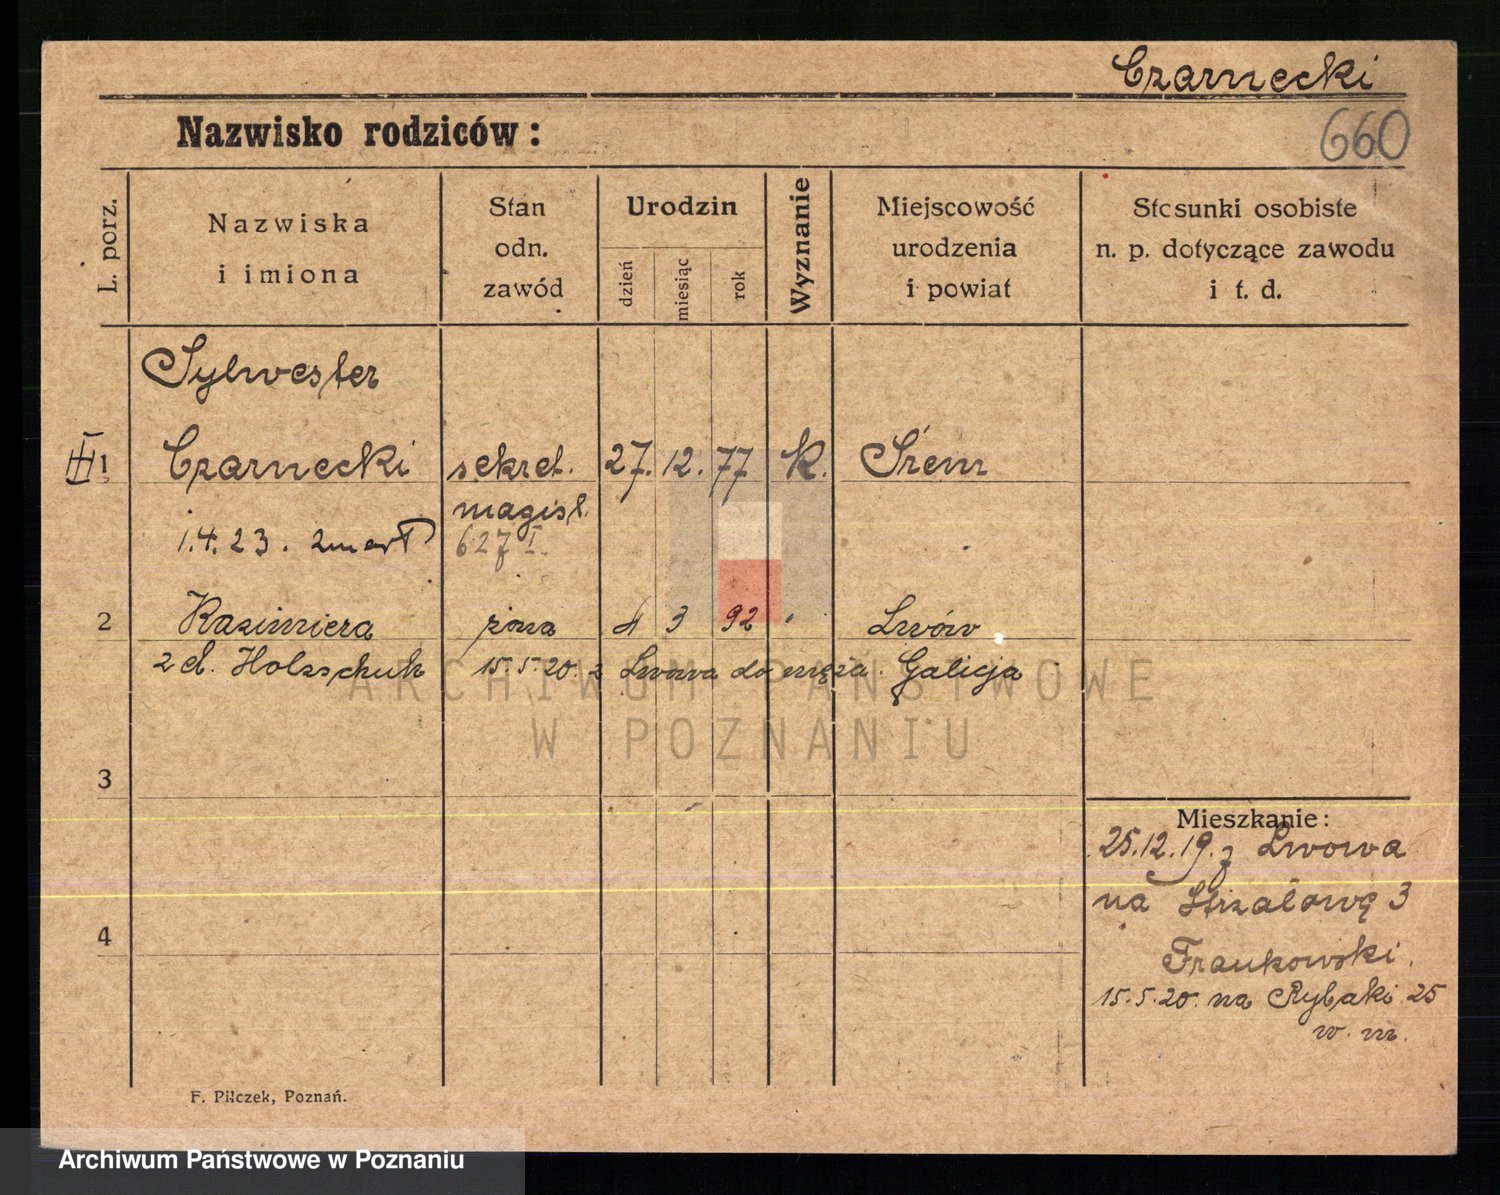 Czarnecki
Nazwisko rodziców:
660
L. porz.
Nazwiska
i imiona
Stan
odn.
zawód
Urodzin
dzień
miesiąc
rok
Wyznanie
Miejscowość
urodzenia
i powiat
Stosunki osobiste
n. p. dotyczące zawodu
i t. d.
Sylwester
III 1 Czarnecki sekret. 27. 12. 77 k. Śrem
magist.
1.4.23. zmarł 627 I.
2 Kazimiera żona 4 3 92 " Lwów
z d. Holzschuh 15.5.20. z Lwowa do męża. Galicja
ARCHIWUM PAŃSTWOWE
W POZNANIU
3
Mieszkanie:
25.12.19. z Lwowa
na Strzałową 3
4
Frankowski.
15.5.20. na Rybaki 25
w. m.
F. Pilczek, Poznań.
Archiwum Państwowe w Poznaniu